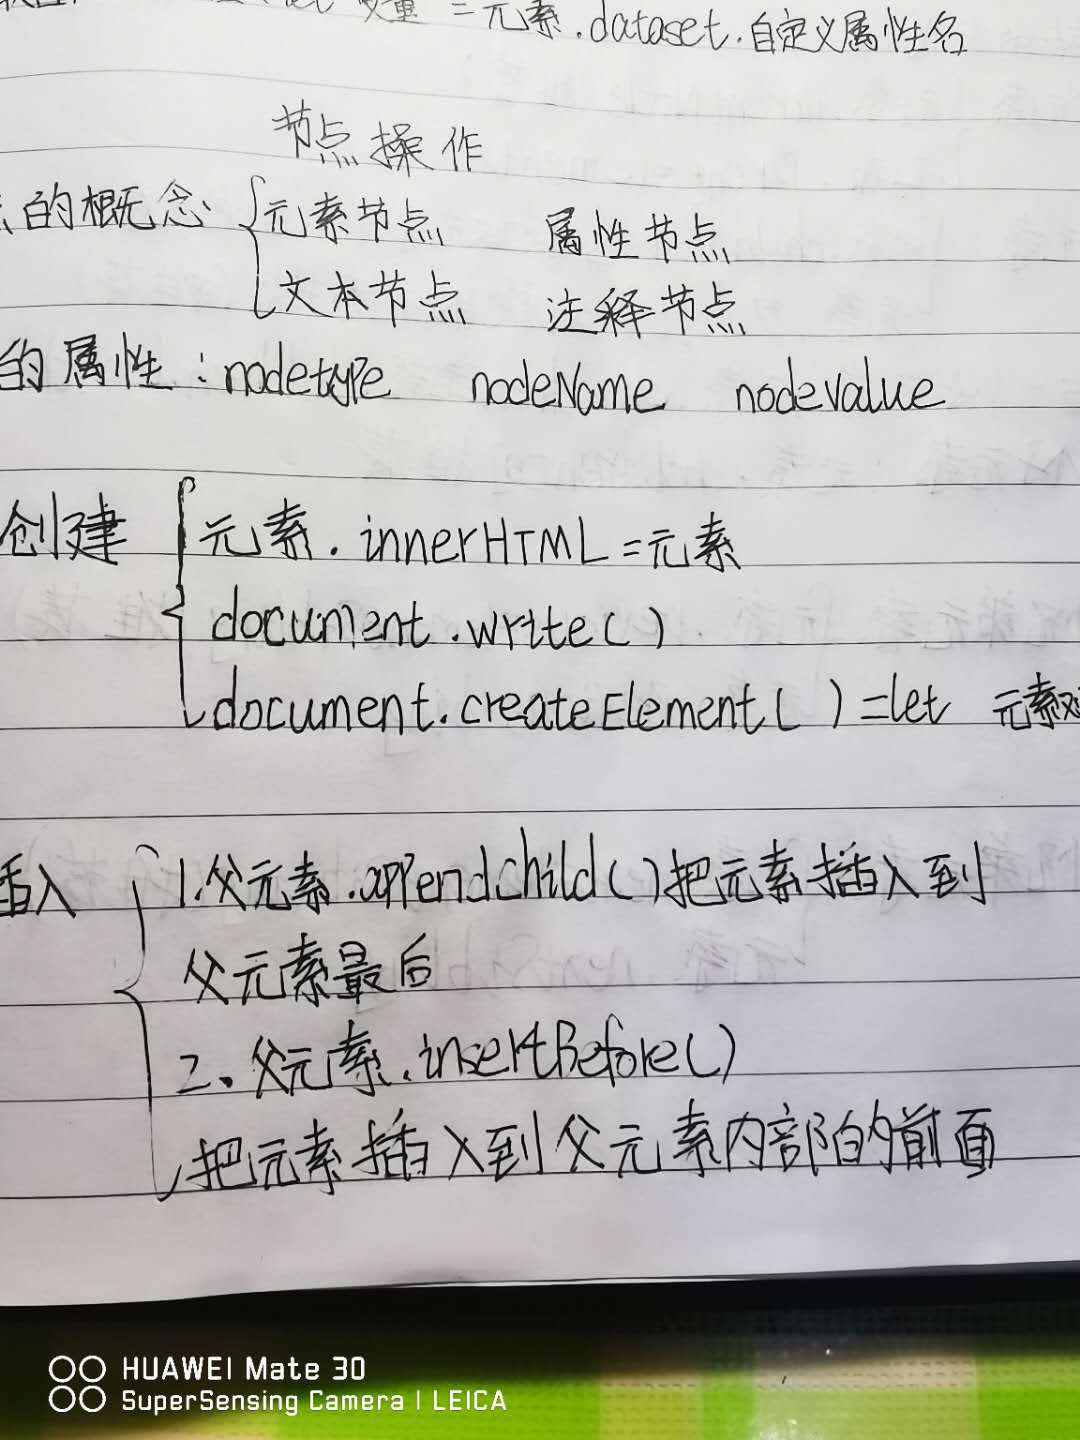 变量 = 元素.dataset.自定义属性名
节点操作
的概念 { 元素节点 属性节点
文本节点 注释节点
的属性: nodetype nodeName nodevalue
创建 { 元素.innerHTML = 元素
document.write()
document.createElement( ) = let 元素
插入 { 1.父元素.appendchild()把元素插入到
父元素最后
2、父元素.insertBefore()
把元素插入到父元素内部的前面
HUAWEI Mate 30
SuperSensing Camera | LEICA